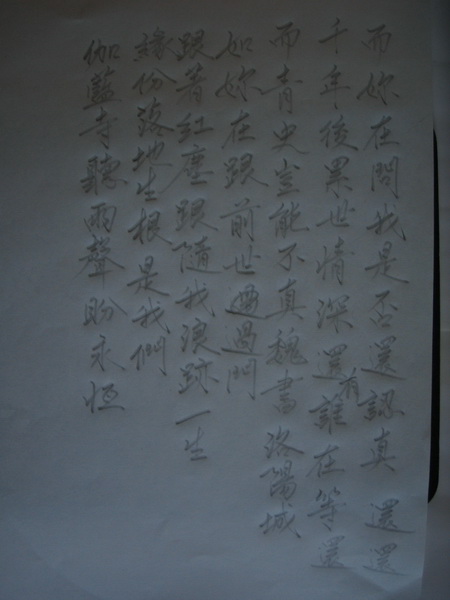 而妳在問我是否還認真 還還
千年後累世情深還有誰在等還
而青史豈能不真魏書洛陽城
如妳在跟前世過門
跟着紅塵跟隨我浪跡一生
緣份落地生根是我們
伽藍寺聽雨聲盼永恆